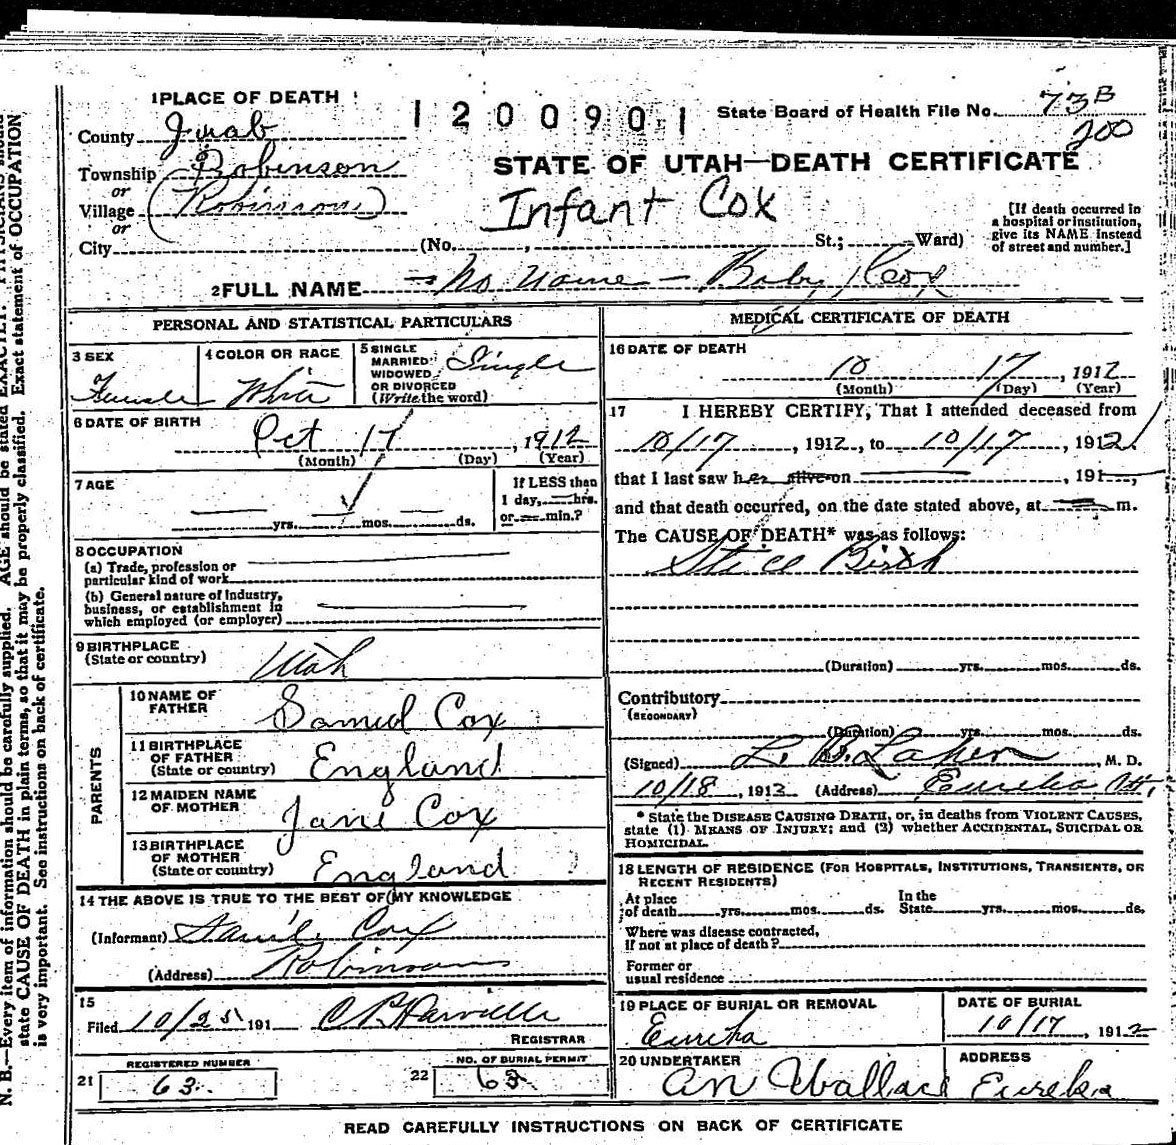 1 PLACE OF DEATH
1200901
State Board of Health File No. 73 B
200
County Juab
Township Robinson
or
Village (Robinson)
or
City
STATE OF UTAH—DEATH CERTIFICATE
Infant Cox
(No. , St.; Ward)
[If death occurred in
a hospital or institution,
give its NAME instead
of street and number.]
2 FULL NAME No name – Baby Cox
PERSONAL AND STATISTICAL PARTICULARS
3 SEX
Female
4 COLOR OR RACE
White
5 SINGLE
MARRIED
WIDOWED
OR DIVORCED
(Write the word)
Single
6 DATE OF BIRTH
Oct 17, 1912
(Month) (Day) (Year)
7 AGE
yrs. mos. ds.
If LESS than
1 day, hrs.
or min.?
8 OCCUPATION
(a) Trade, profession or
particular kind of work
(b) General nature of Industry,
business, or establishment in
which employed (or employer)
9 BIRTHPLACE
(State or country)
Utah
PARENTS
10 NAME OF
FATHER
Samuel Cox
11 BIRTHPLACE
OF FATHER
(State or country)
England
12 MAIDEN NAME
OF MOTHER
Jane Cox
13 BIRTHPLACE
OF MOTHER
(State or country)
England
14 THE ABOVE IS TRUE TO THE BEST OF MY KNOWLEDGE
(Informant) Cox
(Address) Robinson
15
Filed 10/25 191
REGISTRAR
21 REGISTERED NUMBER
63
22 NO. OF BURIAL PERMIT
63
MEDICAL CERTIFICATE OF DEATH
16 DATE OF DEATH
10 17, 1912
(Month) (Day) (Year)
17 I HEREBY CERTIFY, That I attended deceased from
10/17, 1912, to 10/17, 1912
that I last saw her alive on , 191
and that death occurred, on the date stated above, at m.
The CAUSE OF DEATH* was as follows:
Still Birth
(Duration) yrs. mos. ds.
Contributory
(SECONDARY)
(Duration) yrs. mos. ds.
(Signed) L. B. Laker, M. D.
10/18, 1912 (Address) Eureka Ut.
* State the DISEASE CAUSING DEATH, or, in deaths from VIOLENT CAUSES,
state (1) MEANS OF INJURY; and (2) whether ACCIDENTAL, SUICIDAL OR
HOMICIDAL.
18 LENGTH OF RESIDENCE (FOR HOSPITALS, INSTITUTIONS, TRANSIENTS, OR
RECENT RESIDENTS)
At place
of death yrs. mos. ds.
In the
State yrs. mos. ds.
Where was disease contracted,
if not at place of death?
Former or
usual residence
19 PLACE OF BURIAL OR REMOVAL
Eureka
DATE OF BURIAL
10/17, 1912
20 UNDERTAKER
AN Wallace
ADDRESS
Eureka
READ CAREFULLY INSTRUCTIONS ON BACK OF CERTIFICATE
N. B.—Every item of information should be carefully supplied. AGE should be stated EXACTLY. PHYSICIANS should
state CAUSE OF DEATH in plain terms, so that it may be properly classified. Exact statement of OCCUPATION
is very important. See instructions on back of certificate.